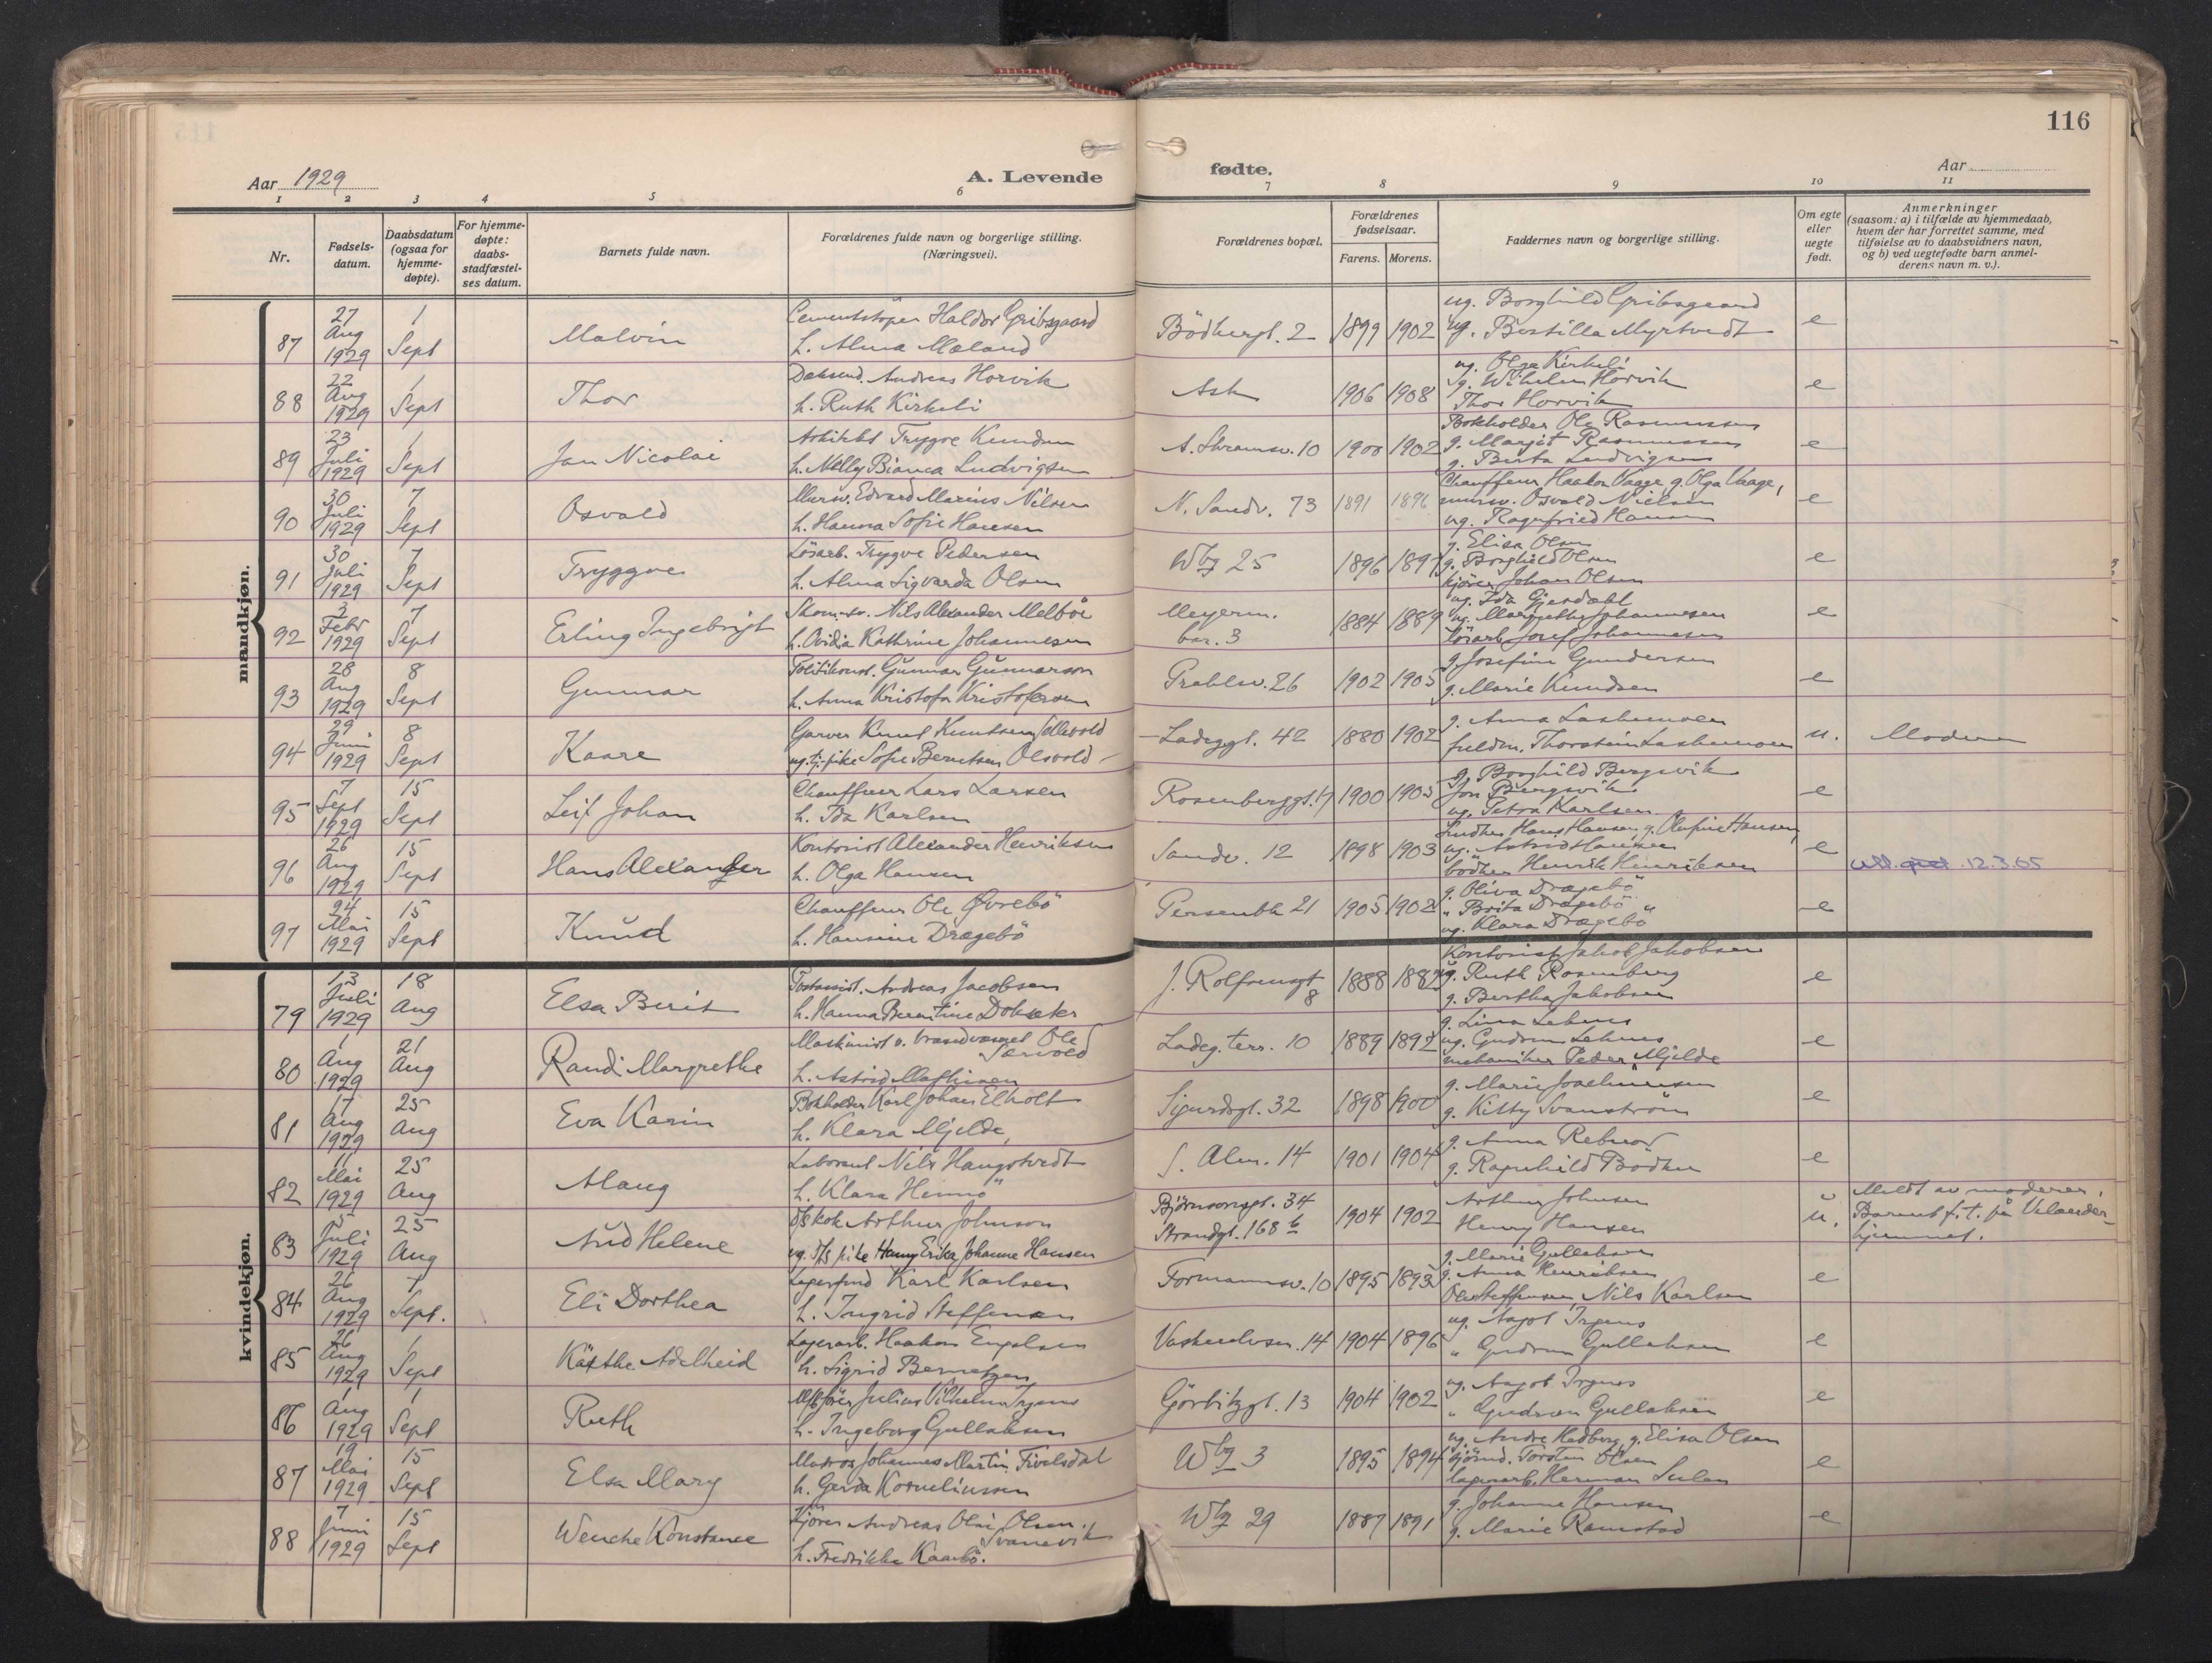 116
Aar 1929
A. Levende
fødte.
Aar
1 2 3 4 5 6 7 8 9 10 11
Nr.
Fødsels-
datum.
Daabsdatum
(ogsaa for
hjemme-
døpte).
For hjemme-
døpte:
daabs-
stadfæstel-
ses datum.
Barnets fulde navn.
Forældrenes fulde navn og borgerlige stilling.
(Næringsvei).
Forældrenes bopæl.
Forældrenes
fødselsaar.
Farens. Morens.
Faddernes navn og borgerlige stilling.
Om egte
eller
uegte
født.
Anmerkninger
(saasom: a) i tilfælde av hjemmedaab,
hvem der har forrettet samme, med
tilføielse av to daabsvidners navn,
og b) ved uegtefødte barn anmel-
derens navn m. v.).
mandkjøn.
87 27 Aug 1929 1 Sept Malvin
Cementstøper Haldor Gribsgaard
h. Alma Mæland
Bödkergt. 2 1899 1902
ug. Borghild Gribsgaard
ug. Bertilla Myrtvedt
e
88 22 Aug 1929 1 Sept Thor
Andreas Horvik
h. Ruth Kirkeli
Ask 1906 1908
ug. Olga Kirkeli
g. Wilhelm Horvik
Thor Horvik
e
89 23 Juli 1929 1 Sept Jan Nicolai
Arkitekt Trygve Kundsen
h. Melly Bianca Ludvigsen
10 1900 1902
Bokholder Ole Rasmussen
g. Margit Rasmussen
g. Berta Ludvigsen
e
90 30 Juli 1929 7 Sept Osvald
Mursv. Edvard Marius Nilsen
h. Hanna Sofie Hansen
N. Sandv. 73 1891 1896
Chauffeur Haakon Vaage g. Olga Vaage,
mursv. Osvald Nielsen
ug. Ragnfried Hansen
e
91 30 Juli 1929 7 Sept Tryggve
Løsarb. Trygve Pedersen
h. Alma Sigvarda Olsen
Wbg 25 1896 1897
g. Elisa Olsen
g. Borghild Olsen
kjører Johan Olsen
e
92 3 Febr 1929 7 Sept Erling Ingebrigt
Nils Alexander Melbøe
h. Ovidia Kathrine Johannesen
Meyerm.
bar. 3 1884 1889
ug. Ida Gjesdahl
ug. Margrethe Johannesen
løsarb. Josef Johannesen
e
93 28 Aug 1929 8 Sept Gunnar
Politikonst. Gunnar Gunnarson
h. Anna Kristofa Kristofersen
Prahlsv. 26 1902 1905
g. Josefine Gundersen
g. Marie Knudsen
e
94 29 Juni 1929 8 Sept Kaare
Garver Knut Knutsen
ug. tj. pike Sofie Berntsen Olsvold
Ladeggt. 42 1880 1902
g. Anna
Thorstein
u. Moderen
95 7 Sept 1929 15 Sept Leif Johan
Chauffeur Lars Larsen
h. Ida Karlsen
Rosenberggt. 17 1900 1905
g. Borghild Bergsvik
Jon Bergsvik
ug. Petra Karlsen
e
96 26 Aug 1929 15 Sept Hans Alexander
Kontorist Alexander Henriksen
h. Olga Hansen
Sandv. 12 1898 1903
Hans Hansen, g. Olufine Hansen,
ug. Astrid Hansen
bødker Henrik Henriksen
e
12.3.65
97 24 Mai 1929 15 Sept Knud
Chauffeur Ole Øvrebö
h. Hansine Drægebö
Persenbk 21 1905 1902
g. Oliva Drægebö
" Brita Drægebö "
ug. Klara Drægebö
e
kvindekjøn.
79 13 Juli 1929 18 Aug Elsa Berit
Andreas Jacobsen
h. Hanna Berntine Doksæter
J. Rolfsensgt 8 1888
Kontorist Jakob Jakobsen
g. Ruth Rosenberg
g. Bertha Jakobsen
e
80 1 Aug 1929 21 Aug Randi Margrethe
Maskinist v. brandvæsenet Ole
Særvold
h. Astrid Mathisen
Ladeg. terr. 10 1889 1892
g. Lina Lehnes
ug. Gudrun Lehnes
mekaniker Peder Mjelde
e
81 17 Aug 1929 25 Aug Eva Karin
Bokholder Karl Johan Elholt
h. Klara Mjelde,
Sigurdsgt. 32 1898 1900
g. Marie Joachimsen
g. Kitty Svanström
e
82 11 Mai 1929 25 Aug Alaug
Laborant Nils Haugstvedt
h. Klara Hennö
S. Alm. 14 1901 1904
g. Anna Rebnord
g. Ragnhild Bødker
e
83 5 Juli 1929 25 Aug Aud Helene
d/s kok Arthur Johnson
ug. d/s pike Hanny Erika Johanne Hansen
Bjørnsonsgt. 34
Strandgt. 168 b 1904 1902
Arthur Johnsen
Henry Hansen
u.
Meldt av moderen,
Barnet f. t. på
hjemmet.
84 26 Aug 1929 1 Sept. Eli Dorthea
Karl Karlsen
h. Ingrid Steffensen
Formannsv. 10 1895 1893
g. Marie Gullaksen
g. Anna Henriksen
Ole Steffensen, Nils Karlsen
e
85 26 Aug 1929 1 Sept Käthe Adelheid
Lagerarb. Haakon Engelsen
h. Sigrid Berntzen
14 1904 1896
ug. Aagot Irgens
" Gudrun Gullaksen
e
86 1 Aug 1929 1 Sept Ruth
Julius Vilhelm Irgens
h. Ingeborg Gullaksen
Görbitzgt. 13 1904 1902
ug. Aagot Irgens
" Gudrun Gullaksen
e
87 19 Mai 1929 15 Sept Elsa Mary
Matros Johannes Martin Fivelsdal
h. Gerda Korneliussen
Wbg 3 1895 1894
ug. Andre Hedberg, g. Elisa Olsen
Torsten Olsen
lagerarb. Herman Sulen
e
88 7 Juni 1929 15 Sept Wenche Konstance
Kjører Andreas Olai Olsen
Svanevik
h. Fredrikke Kaarbö.
Wbg 29 1887 1891
g. Johanne Hansen
g. Marie Ramstad
e